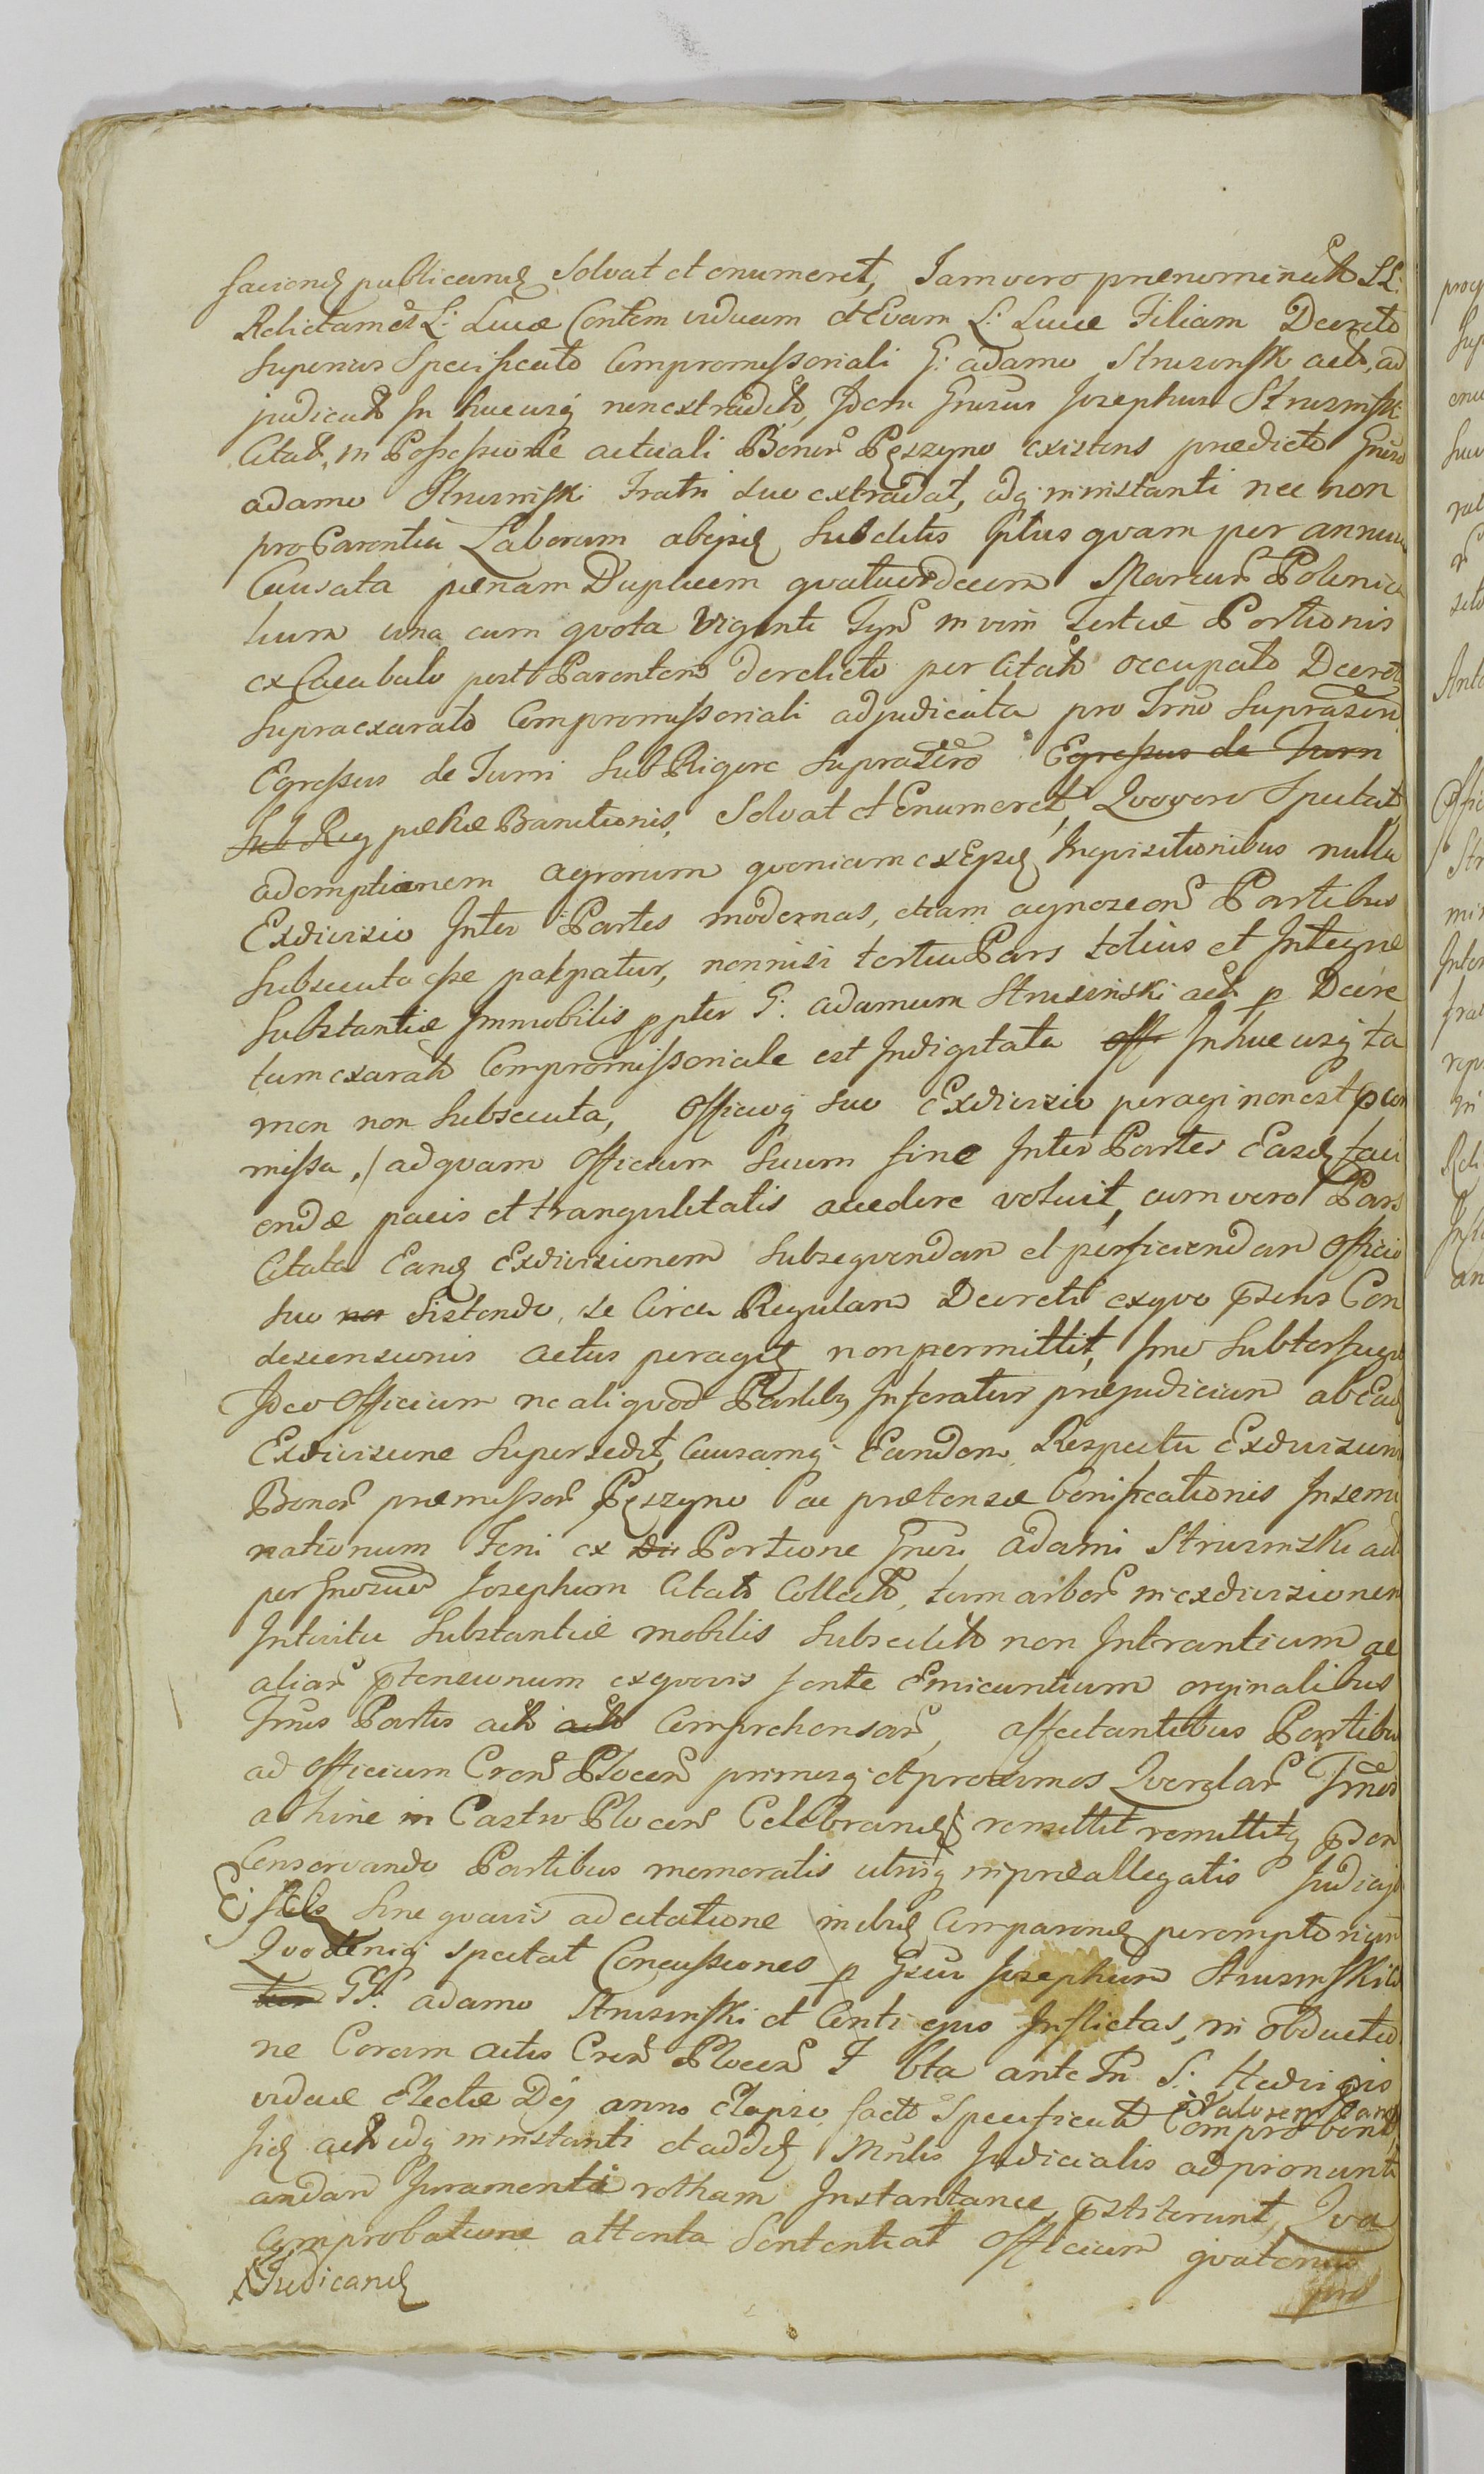 faciend publicand Solvat et enumeret, Jam vero praenominat LL:
Relictam et L: Lucae Contem viduam et Evam L: Lucae Filiam Decreto
Superius Specificato Compromissoriali G: adamo Strusinsk act, ad
judicat In hucusq non extradit, Idem Gnrsus Josephus Strusinski
Citat, in Possessione actuali Bonor Pęszyno existens praedicto Gnrso
adamo Strusinski Fratri suo extradat, idq in instanti nec non
pro Carentia Laborum ab ejsd Subditis plus quam per annum
Causata paenam Duplicem quatuordecem Marcar Polonica
lium una cum quota Viginti Tyn in vim tertiae Portionis
ex Cacabalo post Parentem derelicto per Citat occupato Decret
Supraexarato Compromissoriali adjudicata pro Trno Suprascri
Egressus de Turri Sub Rigore Suprascro Egressus de Turri
Sub Rig paenae Banitionis, Solvat et Enumeret, Quo vero Spectat
ademptionem agrorum quoniam ex Ejsd Inquisitionibus nulla
Exdivisio Inter Partes modernas, etiam agnoscen Partibus
Subsecuta esse palpatur, nonnisi tertia Pars totius et Integrae
Substantiae Immobilis ppter G: adamum Strusinski act p Decre
tum exarat Compromissoriale est Indigitata off In hucusq ta
men non Subsecuta, Officioq suo Exdivisio peragi non est per
missa, / ad quam Officium Suum fine Inter Partes Easd faci
endae pacis et tranquilitatis accedere voluit, cum vero Pars
Citata Eand Exdivisionem subsequendam et perficiendam Officio
suo non Sistendo se Circa Regulam Decreti ex quo psens Con
descensionis actus peragit non permittit, Imo Subterfugit
Ideo Officium ne aliquod Partibq Inferatur praejudicium ab Ead
Exdivisione Supersedit, Causamq Eandem Respectu Exdivisionis
Bonor praemissor Pęszyno ac praetensae bonificationis Insemi
nationum Feni ex Portione Gnrsi Adami Strusinski act
per Gnrosum Josephum Citat Collect, tum arbor in exdivisionem
Intuitu Substantiae mobilis Subsecut non Intrantium ac
aliar ptensionum exquovis fonte Emicantium orginalibus
Trnis Partis act act Comprehensar, affectantibus Partibus
ad Officium Cren Plocen primosq et proximos Querelar Trnos
ab hinc in Castro Plocen Celebrand remittit remittitq pden
Conservando Partibus memoratis utriq in praeallegatis Judicijs
Sine quavis adcitatione inibid Comparend peremptorium
Quo deniq spectat Concussiones p Gnsu Josephum Strusinski
GG: adamo Strusinski et Conti ejus Inflictas, in obductio
ne Coram actis Cren Plocen F bta ante Fn S: Hedvigis
viduae Electae Dej anno Elapso facto Specificat Comprobant
act idq in instanti et addit Mnlis Judicialis ad pronunti
andam Juramenti rotham Instantanee pstiterunt, Qua
Comprobatione attenta Sententiat Officium quatenus
Judicand